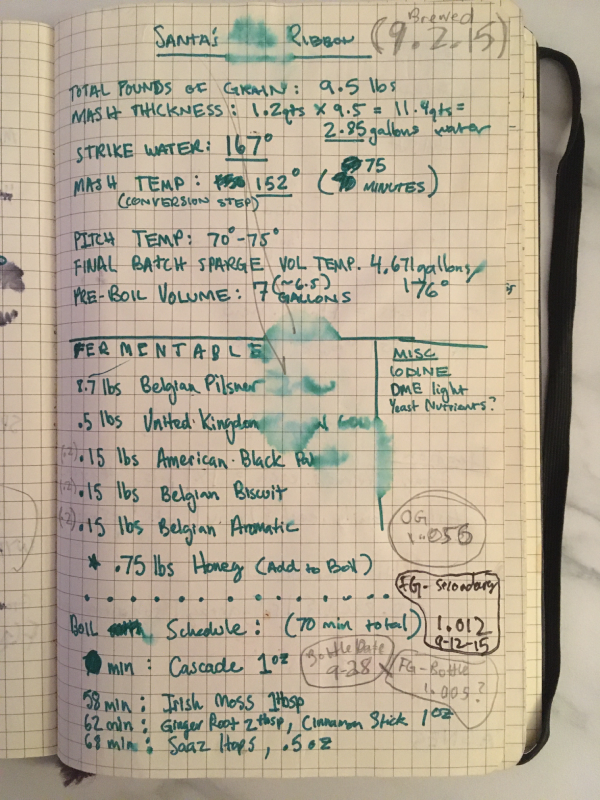 SANTA'S RIBBON
(Brewed 9.2.15)
TOTAL POUNDS OF GRAIN: 9.5 lbs
MASH THICKNESS: 1.2qts x 9.5 = 11.4qts =
2.85 gallons water
STRIKE WATER: 167°
MASH TEMP: 152° (75 MINUTES)
(CONVERSION STEP)
PITCH TEMP: 70°-75°
FINAL BATCH SPARGE VOL TEMP. 4.671gallons/
176°
PRE-BOIL VOLUME: 7 (~6.5) GALLONS
FERMENTABLE
8.7 lbs Belgian Pilsner
.5 lbs United Kingdom
(.2) .15 lbs American Black
(.2) .15 lbs Belgian Biscuit
(.2) .15 lbs Belgian Aromatic
* .75 lbs Honey (Add to Boil)
MISC
IODINE
DME light
Yeast Nutrients?
OG
1.056
FG-Secondary
1.012
9-12-15
BOIL Schedule: (70 min total)
min: Cascade 1oz
Bottle Date
9-28
FG-Bottle
1.005?
58min: Irish Moss 1tbsp
62min: Ginger Root 2tbsp, Cinnamon Stick 1oz
68min: Saaz Hops, .5oz